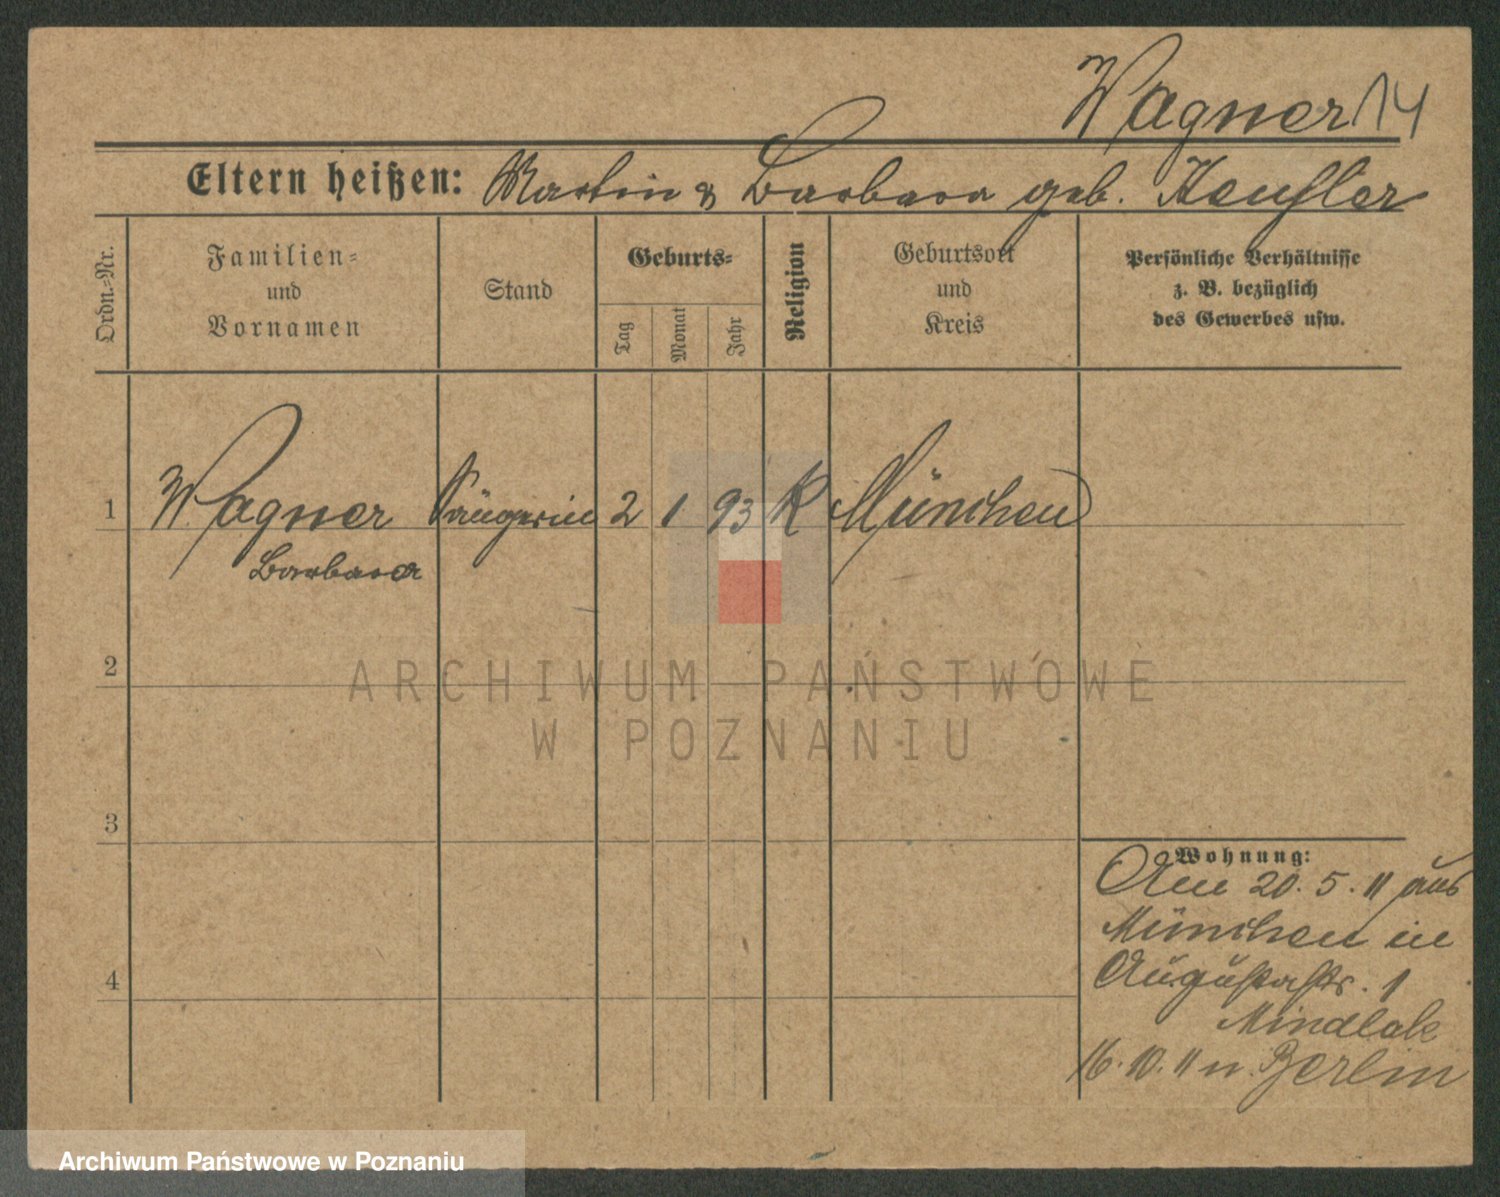 Wagner 14
Eltern heißen: Martin & Barbara geb. Keußler
Ordn.-Nr.
Familien-
und
Vornamen
Stand
Geburts-
Tag
Monat
Jahr
Religion
Geburtsort
und
Kreis
Persönliche Verhältnisse
z. B. bezüglich
des Gewerbes usw.
1 Wagner Sängerin 2 1 93 K München
Barbara
2
ARCHIWUM PAŃSTWOWE
W POZNANIU
3
Wohnung:
Am 20. 5. 11 aus
München in
Augustastr. 1
4
Mindlak
16. 10. 11 n. Berlin
Archiwum Państwowe w Poznaniu